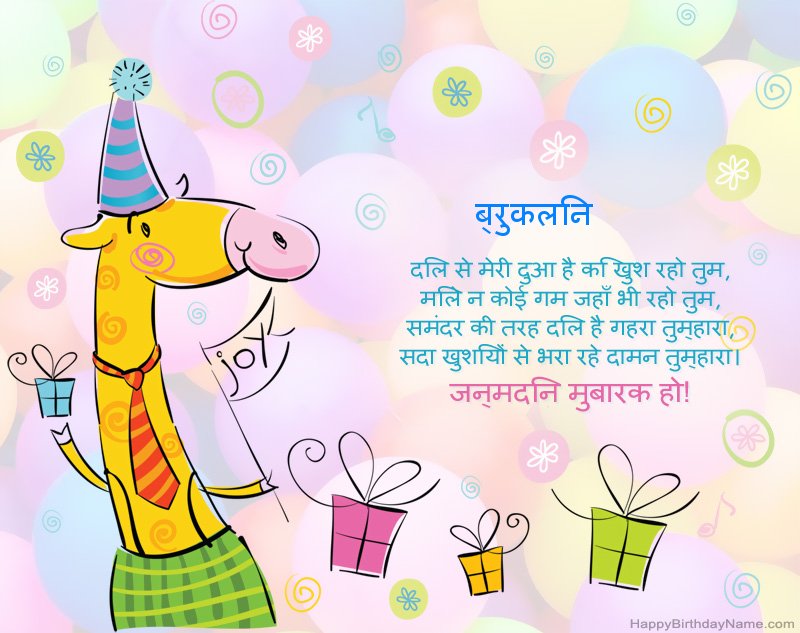 ब्रुकलनि
दलि से मेरी दुआ है कि खुश रहो तुम,
मलिे न कोई गम जहाँ भी रहो तुम,
समंदर की तरह दलि है गहरा तुम्हारा,
सदा खुशयिों से भरा रहे दामन तुम्हारा।
जन्मदनि मुबारक हो!
joy
HappyBirthdayName.com